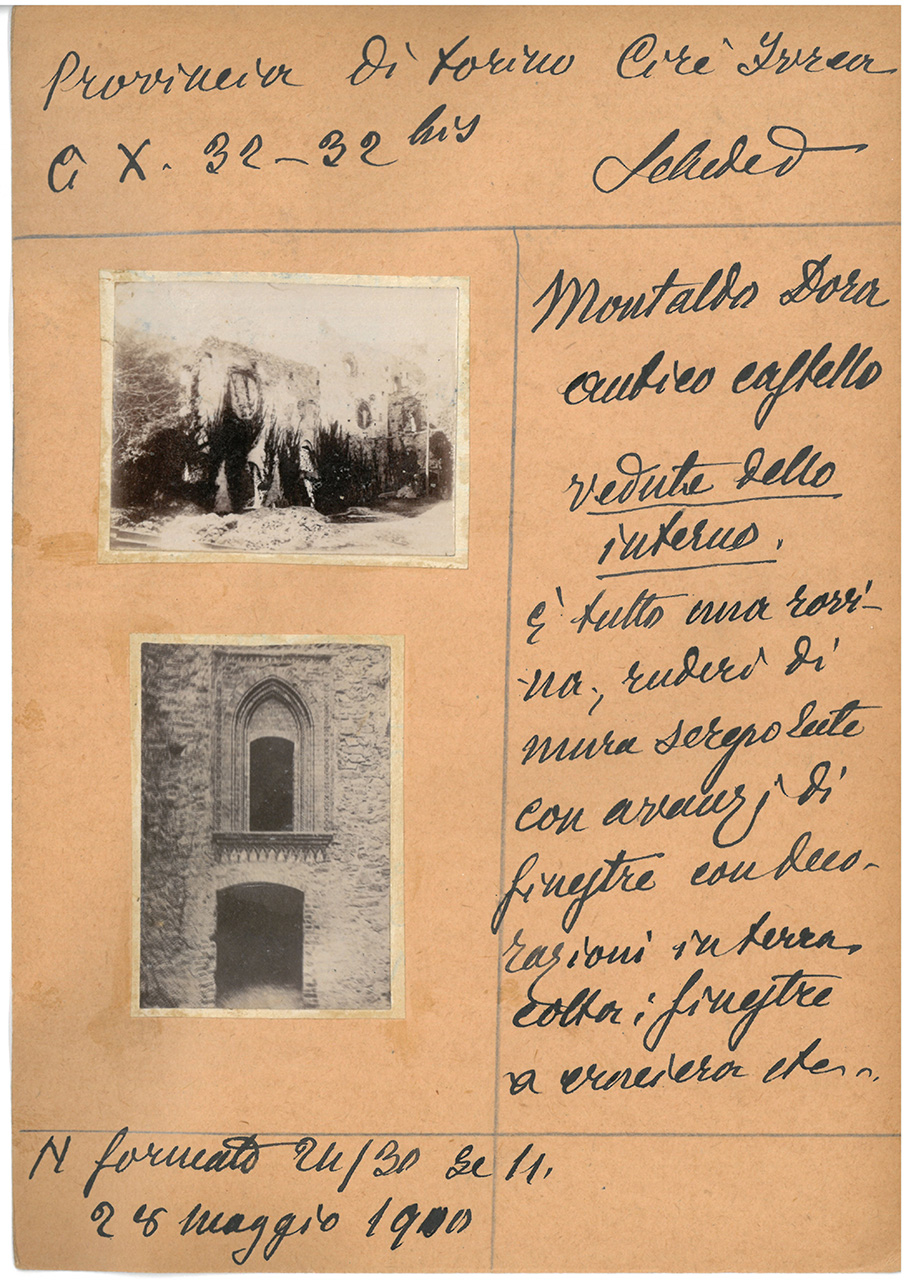 Provincia di Torino Ciré Ivrea
C X. 32-32 bis
Montaldo Dora
antico castello
vedute dello
interno.
È tutto una rovi-
na, ruderi di
mura sergpolente
con avanzj di
finestre con deco-
razioni in terra
cotta; finestre
a crociera etc..
N formato 24/30 Se 11.
28 maggio 1900